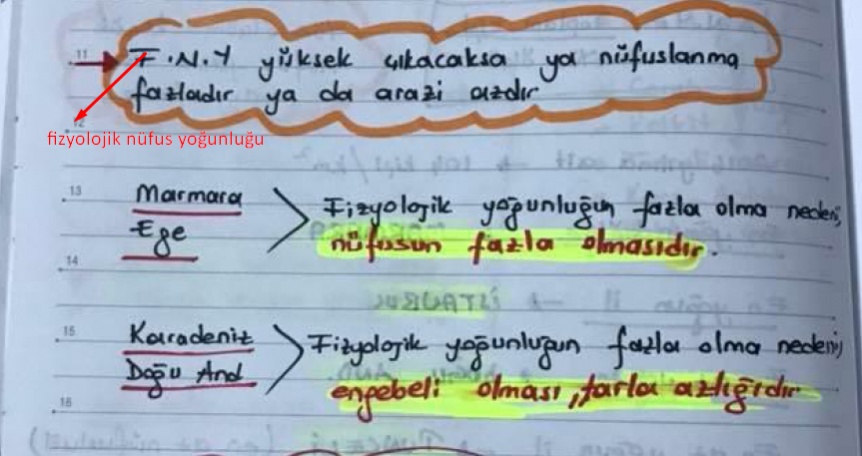 11
F.N.Y yüksek çıkacaksa ya nüfuslanma
fazladır ya da arazi azdır
12
fizyolojik nüfus yoğunluğu
13
Marmara
Ege
Fizyolojik yoğunluğun fazla olma nedeni;
nüfusun fazla olmasıdır.
14
15
Karadeniz
Doğu And
Fizyolojik yoğunluğun fazla olma nedeni;
engebeli olması, tarla azlığıdır
16